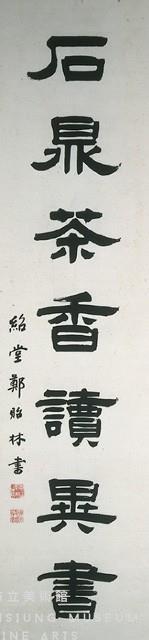 石鼎茶香讀異書
紹堂鄭貽林書
市立美術館
HSIUNG MUSEUM
FINE ARTS